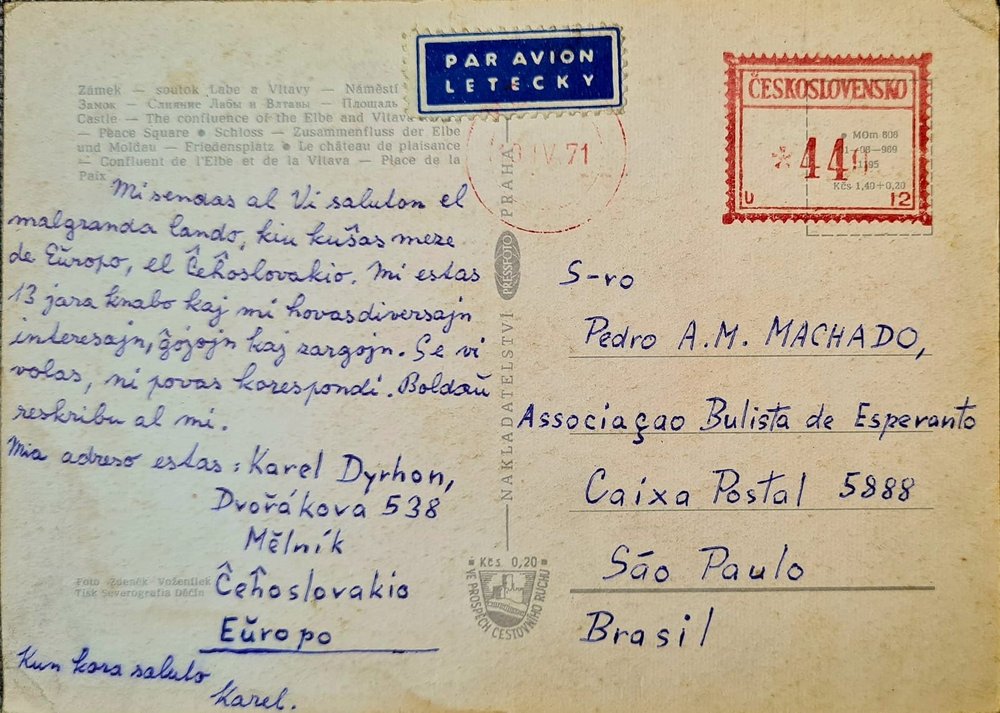 PAR AVION
LETECKY
Zámek — soutok Labe a Vltavy — Náměstí
Замок — Слияние Лабы и Влтавы — Площадь
Castle — The confluence of the Elbe and Vltava
— Peace Square ● Schloss — Zusammenfluss der Elbe
und Moldau — Friedensplatz ● Le château de plaisance
— Confluent de l'Elbe et de la Vltava — Place de la
Paix
Mi sendas al Vi saluton el
malgranda lando, kiu kuŝas meze
de Eŭropo, el Ĉeĥoslovakio. Mi estas
13 jara knabo kaj mi hovasdiversajn
interesajn, ĝojojn kaj zargojn. Se vi
volas, ni povas korespondi. Boldaŭ
reskribu al mi.
Mia adreso estas: Karel Dyrhon,
Dvořákova 538
Mělník
Ĉeĥoslovakio
Eŭropo
Kun kora saluto
Karel.
Foto Zdeněk Voženílek
Tisk Severografia Děčín
IV. 71
NAKLADATELSTVÍ PRESSFOTO PRAHA
Kčs 0,20
VE PROSPĚCH CESTOVNÍHO RUCHU
ČESKOSLOVENSKO
*44
MOm 808
Kčs 1,40+0,20
U 12
S-ro
Pedro A.M. MACHADO,
Associaçao Bulista de Esperanto
Caixa Postal 5888
São Paulo
Brasil